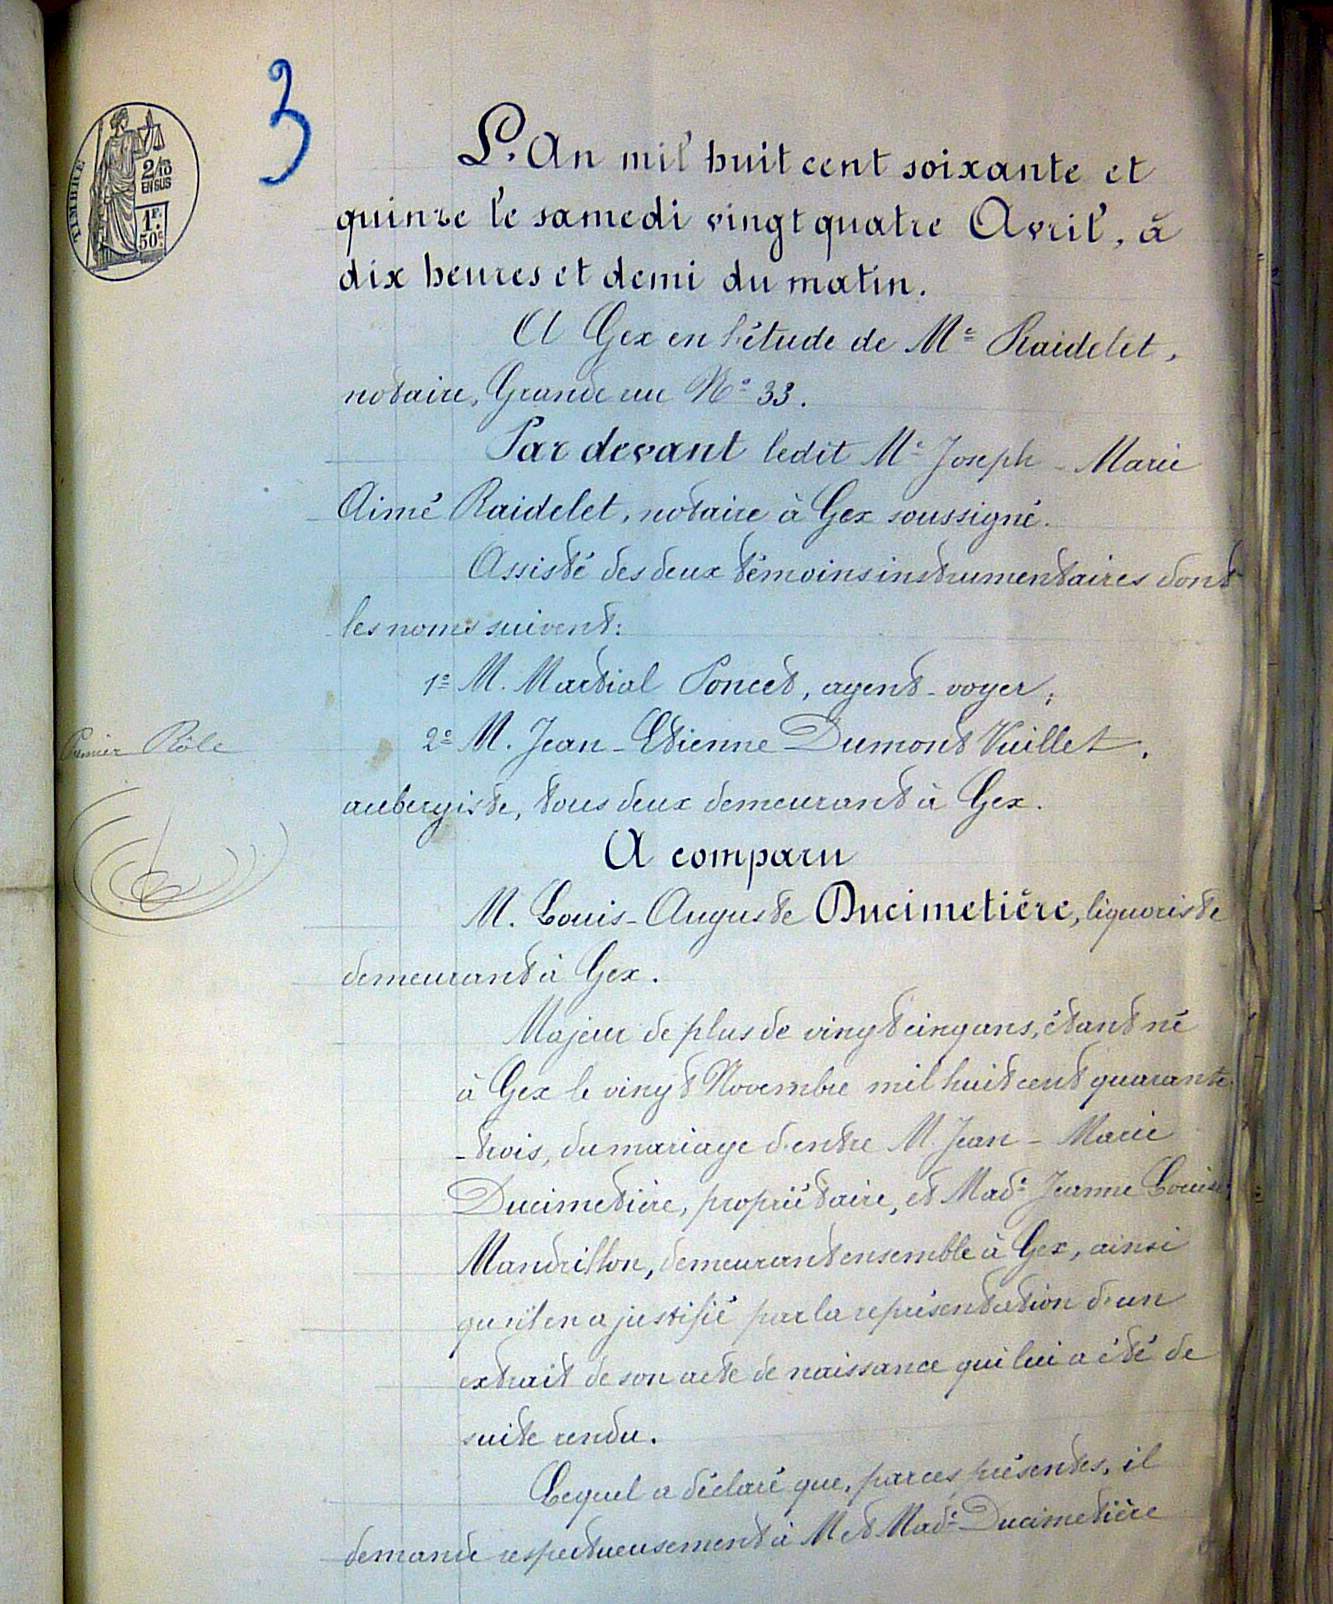 3
TIMBRE
2/10
EN SUS
1F.
50c
L'An mil huit cent soixante et
quinze le samedi vingt quatre Avril, à
dix heures et demi du matin.
A Gex en l'étude de Me Raidelet,
notaire, Grande rue No 33.
Par devant ledit Me Joseph-Marie
Aimé Raidelet, notaire à Gex soussigné.
Assisté des deux témoins instrumentaires dont
les noms suivent:
1o M. Martial Poncet, agent-voyer;
2o M. Jean-Etienne Dumont Vuillet,
Premier Rôle
aubergiste, tous deux demeurant à Gex.
A comparu
M. Louis-Auguste Ducimetière, liquoriste
demeurant à Gex.
Majeur de plus de vingt cinq ans, étant né
à Gex le vingt Novembre mil huit cent quarante
-trois, du mariage d'entre M. Jean-Marie
Ducimetière, propriétaire, et Made Jeanne Louise
Mandrillon, demeurant ensemble à Gex, ainsi
qu'il en a justifié par la représentation d'un
extrait de son acte de naissance qui lui a été de
suite rendu.
Lequel a déclaré que, par ces présentes, il
demande respectueusement à M et Made Ducimetière